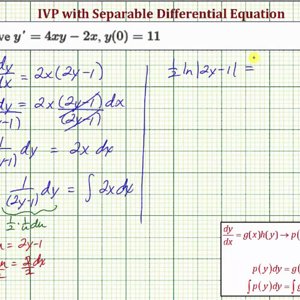 IVP with Separable Differential Equation
ve y' = 4xy − 2x, y(0) = 11
dy/dx = 2x(2y-1)
dy = 2x (2y-1) dx / (2y-1)
dy = 2x dx
∫ 1/(2y-1) dy = ∫ 2x dx
½ · ¼ du
= 2y-1
½ ln|2y-1| =
dy/dx = g(x)h(y) → p(
p(y)dy = g(
∫ p(y)dy = ∫